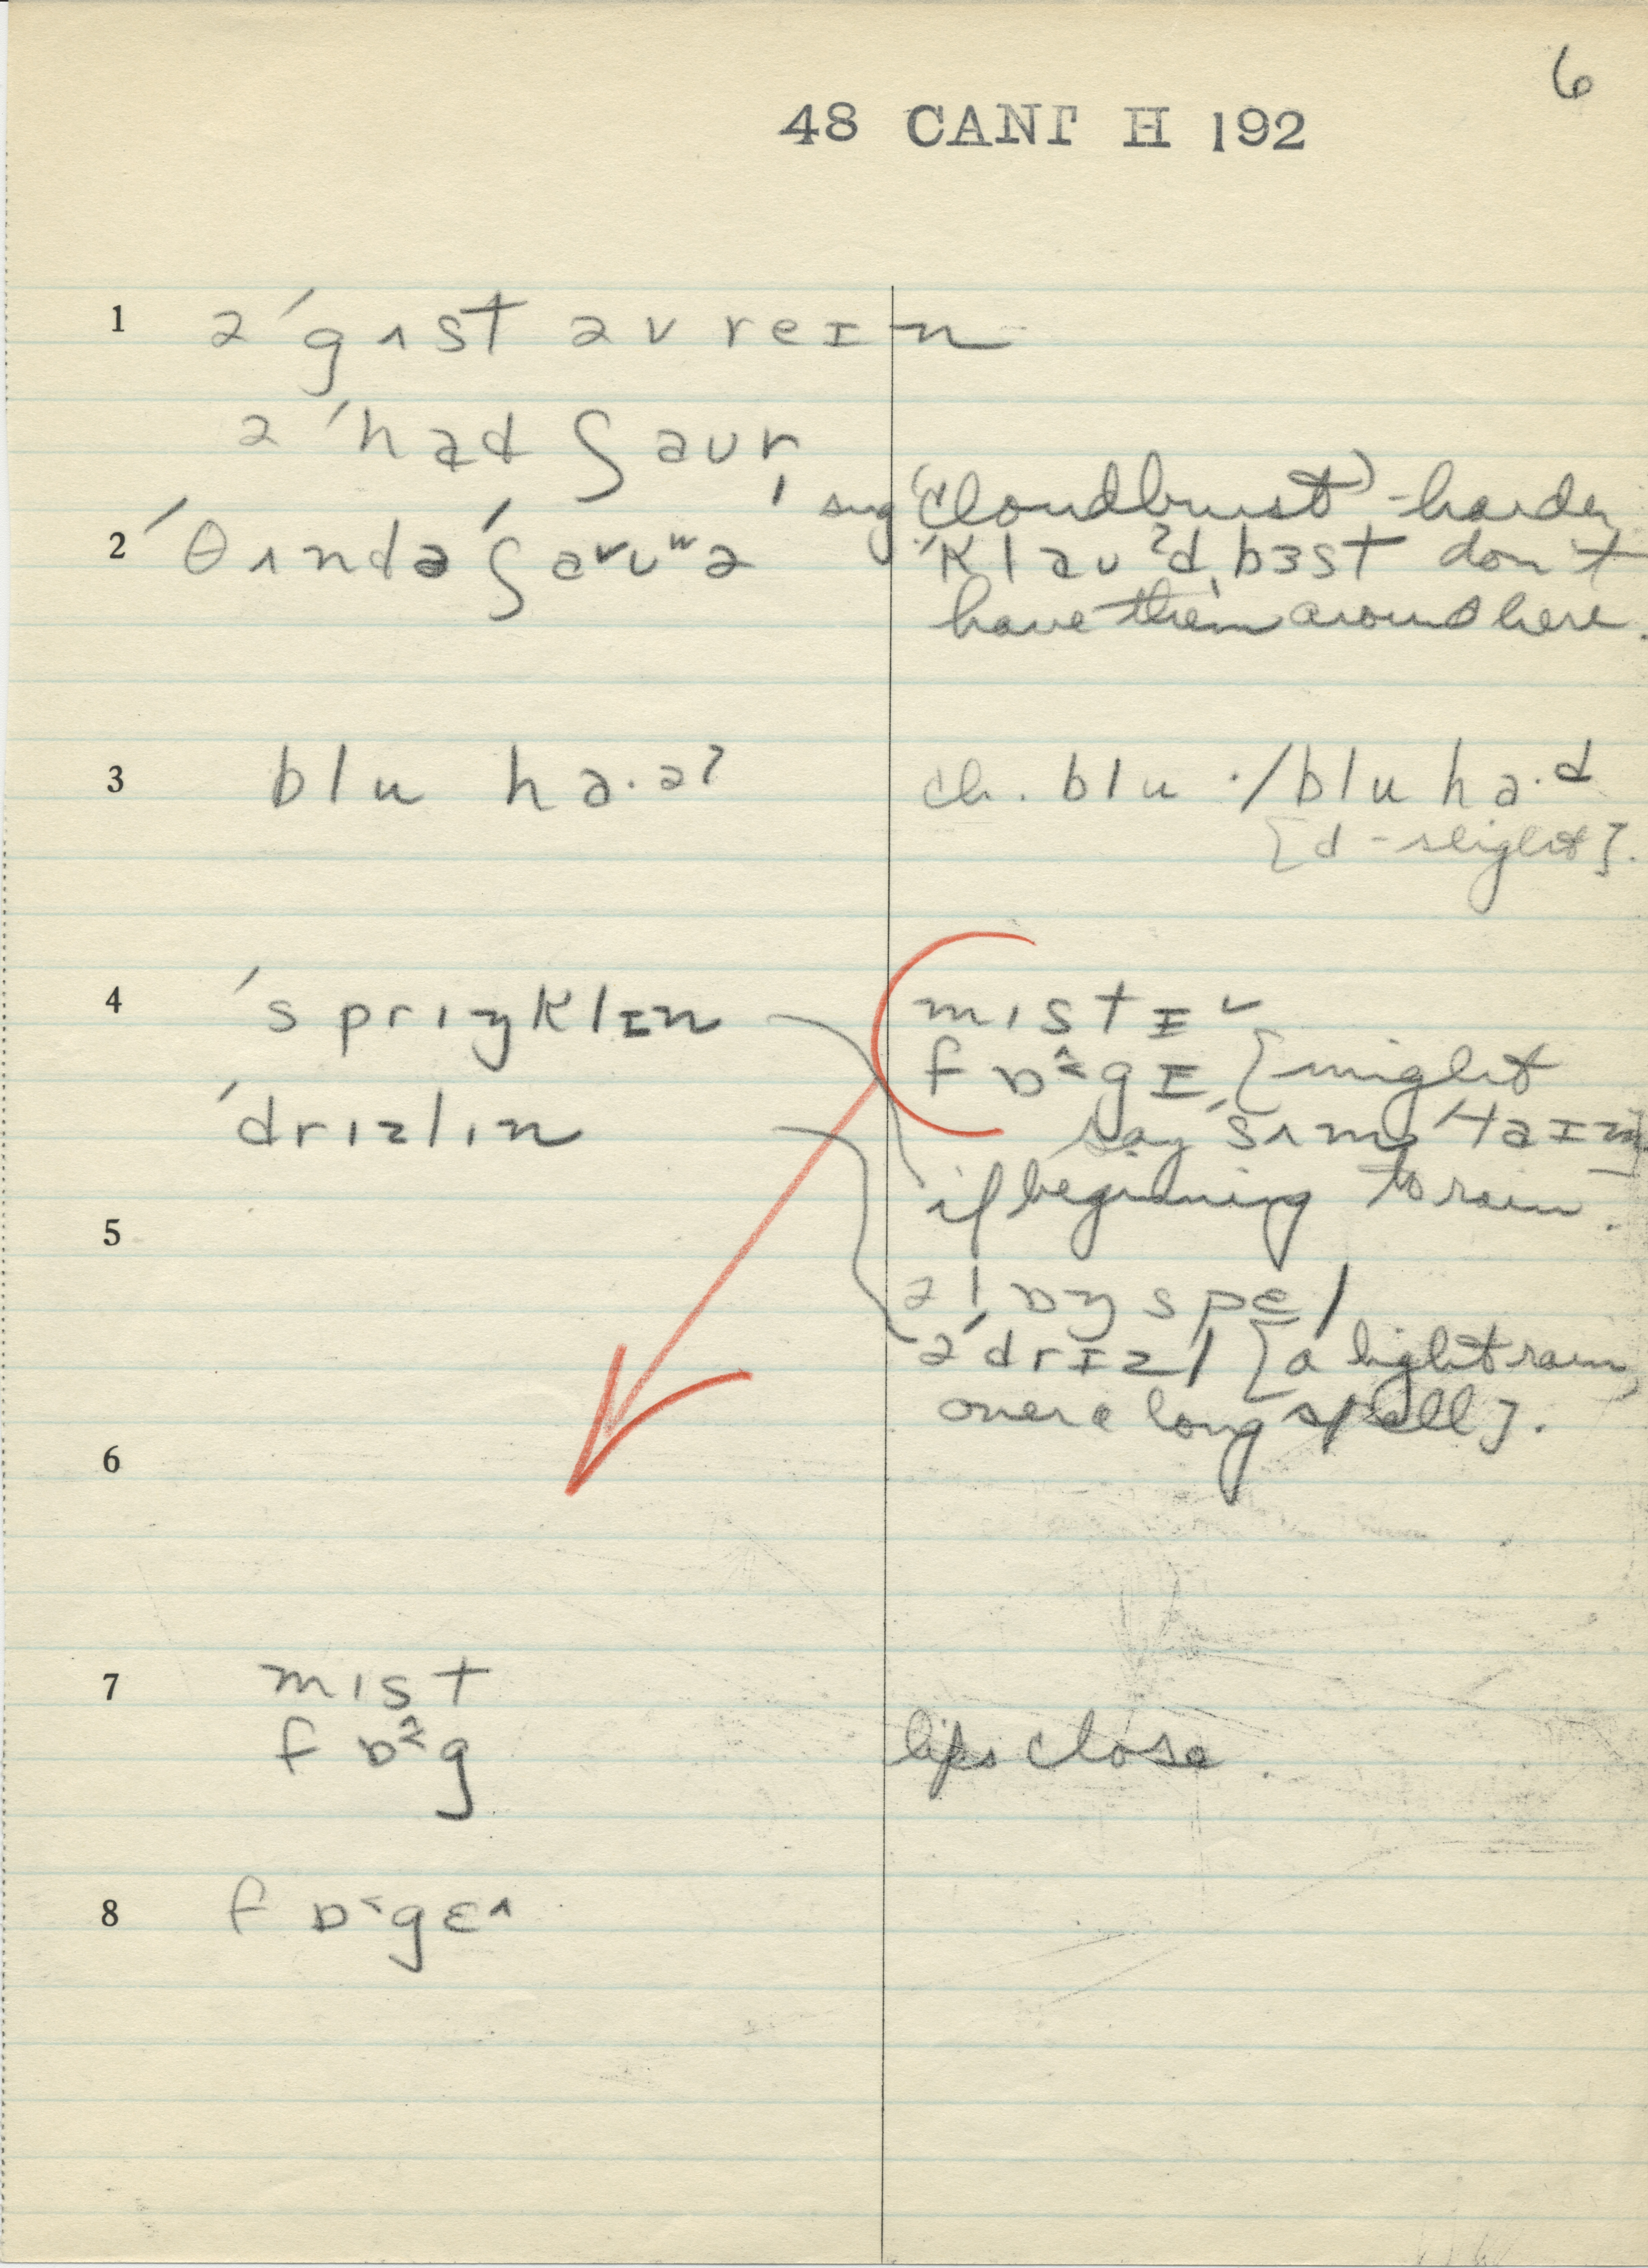 6
48 CANT H 192
1 ə ˈgʌst əv reɪn
ə ˈhad ʃaʊr
2 ˈθʌndəˈʃaᵛʊʷə sug. (cloudburst) - harder
ˈklaʊˀdˌbɜst don't
have them around here.
3 blu ha·əˀ ch. blu ·/blu ha·d
[d - slight].
4 ˈsprɪŋklɪn mɪstɪ˅
fɒ˄˂gɪ [might
ˈdrɪzlɪn say ˈsʌmˌtaɪm]
if beginning to rain.
5
ə lɒŋ spɛl
ə ˈdrɪzl [a light rain,
over a long spell].
6
7 mɪst
fɒ˄˂g lips close.
8 fɒ˂gɛ˄